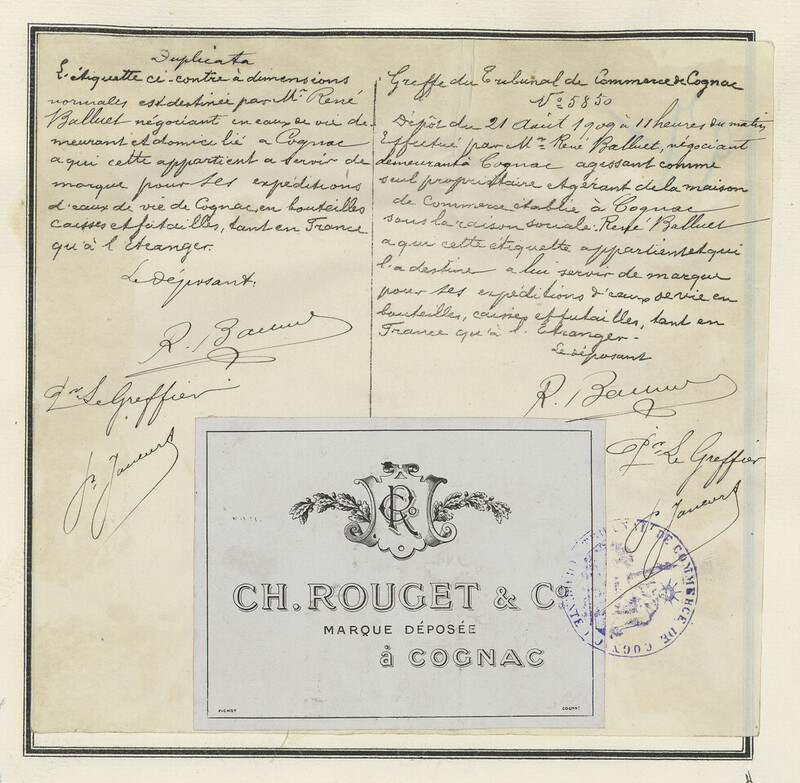 Duplicata
L'étiquette ci-contre à dimensions
normales est destinée par Mr René
Balluet négociant en eaux de vie de-
meurant et domicilié à Cognac
a qui cette appartient a servir de
marque pour ses expéditions
d'eaux de vie de Cognac, en bouteilles
caisses et futailles, tant en France
qu'à l'Etranger.
Le déposant.
R. Balluet
Pr Le Greffier
Greffe du Tribunal de Commerce de Cognac
No 5850
Dépôt du 21 Août 1909 à 11 heures du matin
Effectué par Mr René Balluet, négociant
demeurant à Cognac agissant comme
seul propriétaire et gérant de la maison
de Commerce établie à Cognac
sous la raison sociale: René Balluet
a qui cette étiquette appartient et qui
l'a destine a lui servir de marque
pour ses expéditions d'eaux de vie en
bouteilles, caisses et futailles, tant en
France qu'à l'Etranger-
Le déposant
R. Balluet
Pr Le Greffier
CRCo
CH. ROUGET & Co
MARQUE DÉPOSÉE
à COGNAC
PICHOT
COGNAC
TRIBUNAL DE COMMERCE DE COGNAC